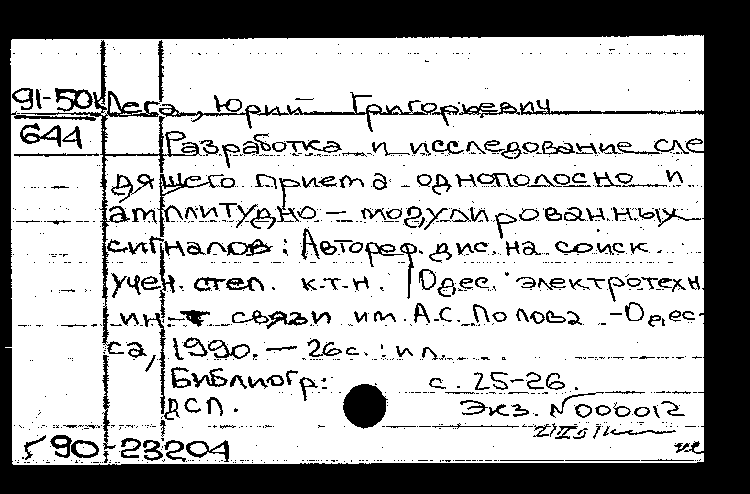 91-50к Лега, Юрий Григорьевич
644
Разработка и исследование сле
дящего приема однополосно и
амплитудно – модулированных
сигналов: Автореф. дис. на соиск.
учен. степ. к.т.н. /Одес. электротехн
ин-т связи им. А.С. Попова -Одес-
са, 1990. – 26с. : ил.
Библиогр: с. 25-26.
ДСП. Экз. N000012
90-23204